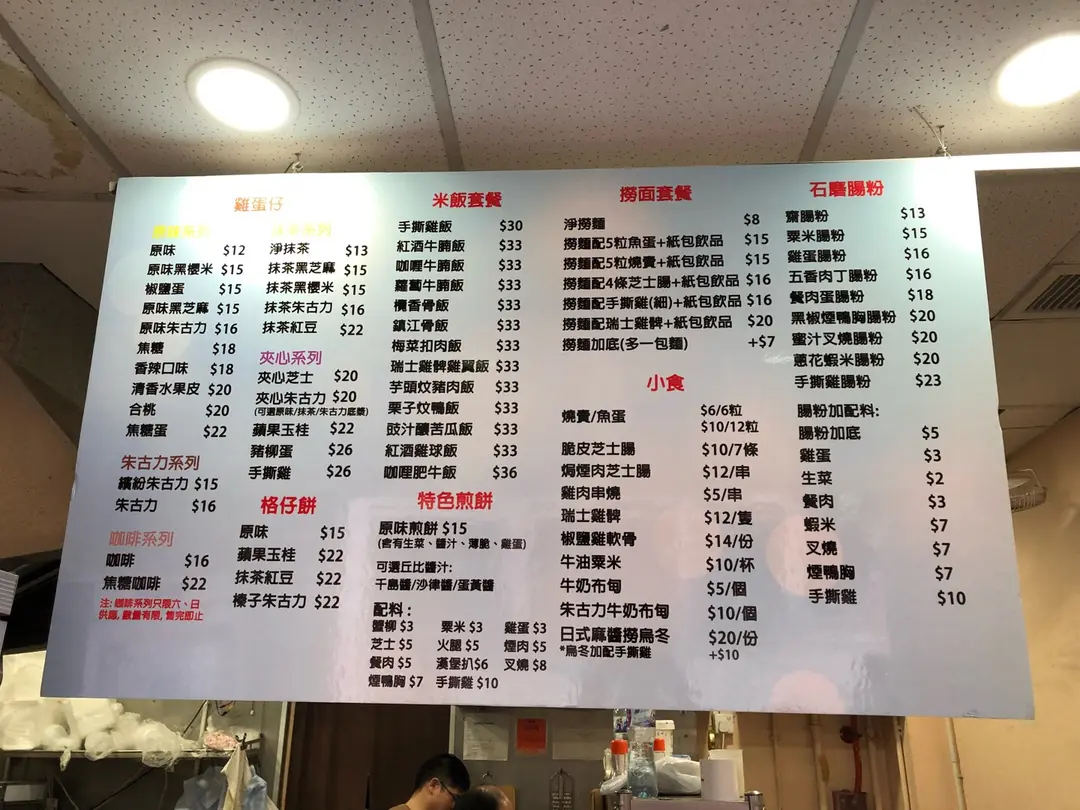 雞蛋仔
原味系列
原味 $12
原味黑櫻米 $15
椒鹽蛋 $15
原味黑芝麻 $15
原味朱古力 $16
焦糖 $18
香辣口味 $18
清香水果皮 $20
合桃 $20
焦糖蛋 $22
朱古力系列
繽紛朱古力 $15
朱古力 $16
咖啡系列
咖啡 $16
焦糖咖啡 $22
注: 咖啡系列只限六、日
供應, 數量有限, 售完即止
抹茶系列
淨抹茶 $13
抹茶黑芝麻 $15
抹茶黑櫻米 $15
抹茶朱古力 $16
抹茶紅豆 $22
夾心系列
夾心芝士 $20
夾心朱古力 $20
(可選原味/抹茶/朱古力底漿)
蘋果玉桂 $22
豬柳蛋 $26
手撕雞 $26
格仔餅
原味 $15
蘋果玉桂 $22
抹茶紅豆 $22
榛子朱古力 $22
米飯套餐
手撕雞飯 $30
紅酒牛腩飯 $33
咖喱牛腩飯 $33
蘿蔔牛腩飯 $33
欖香骨飯 $33
鎮江骨飯 $33
梅菜扣肉飯 $33
瑞士雞髀雞翼飯 $33
芋頭炆豬肉飯 $33
栗子炆鴨飯 $33
豉汁釀苦瓜飯 $33
紅酒雞球飯 $33
咖喱肥牛飯 $36
特色煎餅
原味煎餅 $15
(含有生菜、醬汁、薄脆、雞蛋)
可選丘比醬汁:
千島醬/沙律醬/蛋黃醬
配料:
蟹柳 $3 粟米 $3 雞蛋 $3
芝士 $5 火腿 $5 煙肉 $5
餐肉 $5 漢堡扒$6 叉燒 $8
煙鴨胸 $7 手撕雞 $10
撈面套餐
淨撈麵 $8
撈麵配5粒魚蛋+紙包飲品 $15
撈麵配5粒燒賣+紙包飲品 $15
撈麵配4條芝士腸+紙包飲品 $16
撈麵配手撕雞(細)+紙包飲品 $16
撈麵配瑞士雞髀+紙包飲品 $20
撈麵加底(多一包麵) +$7
小食
燒賣/魚蛋 $6/6粒
$10/12粒
脆皮芝士腸 $10/7條
焗煙肉芝士腸 $12/串
雞肉串燒 $5/串
瑞士雞髀 $12/隻
椒鹽雞軟骨 $14/份
牛油粟米 $10/杯
牛奶布甸 $5/個
朱古力牛奶布甸 $10/個
日式麻醬撈烏冬 $20/份
*烏冬加配手撕雞 +$10
石磨腸粉
齋腸粉 $13
粟米腸粉 $15
雞蛋腸粉 $16
五香肉丁腸粉 $16
餐肉蛋腸粉 $18
黑椒煙鴨胸腸粉 $20
蜜汁叉燒腸粉 $20
蔥花蝦米腸粉 $20
手撕雞腸粉 $23
腸粉加配料:
腸粉加底 $5
雞蛋 $3
生菜 $2
餐肉 $3
蝦米 $7
叉燒 $7
煙鴨胸 $7
手撕雞 $10